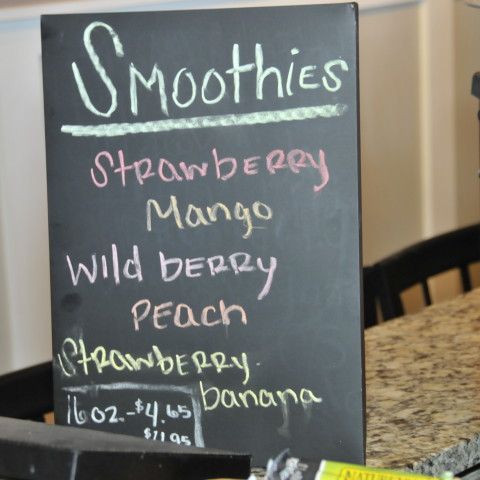 Smoothies
Strawberry
Mango
Wild berry
Peach
Strawberry
banana
16oz.-$4.65